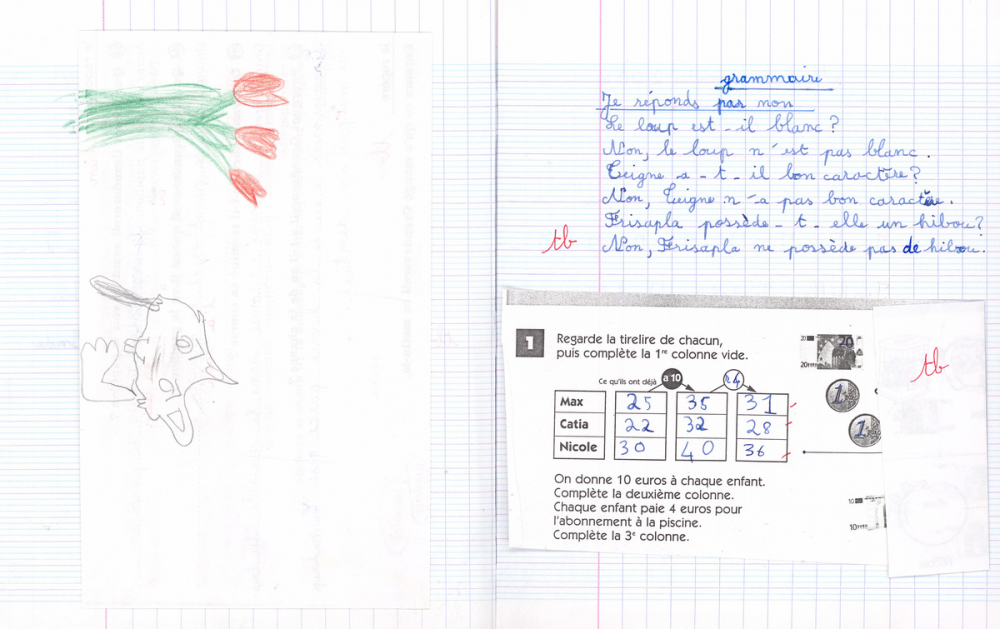 grammaire
Je réponds pas non
Le loup est-il blanc ?
Non, le loup n'est pas blanc.
Teigne a-t-il bon caractère ?
Non, Teigne n'a pas bon caractère.
Frisapla possède-t-elle un hibou ?
tb Non, Frisapla ne possède pas de hibou.
1 Regarde la tirelire de chacun,
puis complète la 1re colonne vide.
20 20
20
tb
Ce qu'ils ont déjà a 10 r 4
Max 25 35 31
1
Catia 22 32 28
1
Nicole 30 40 36
On donne 10 euros à chaque enfant.
Complète la deuxième colonne.
10
Chaque enfant paie 4 euros pour
l'abonnement à la piscine.
10
Complète la 3e colonne.